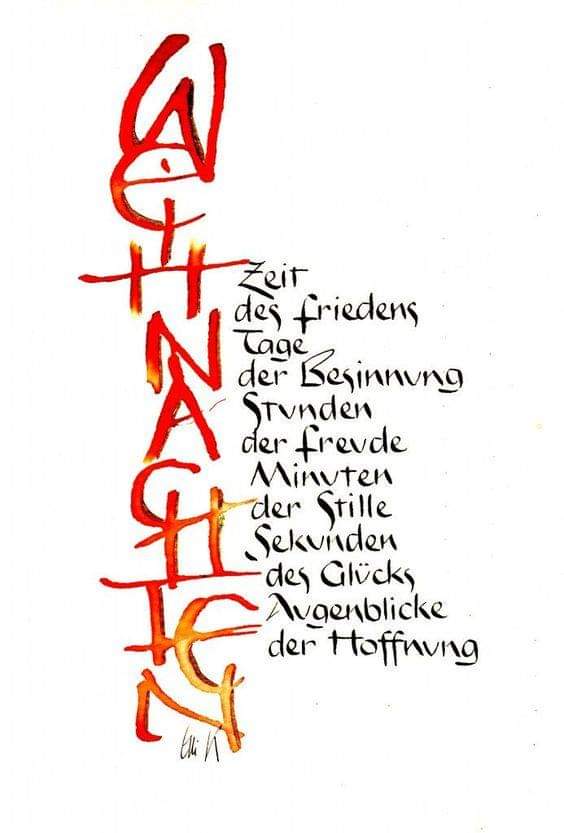 WEIHNACHTEN
Zeit
des Friedens
Tage
der Besinnung
Stunden
der Freude
Minuten
der Stille
Sekunden
des Glücks
Augenblicke
der Hoffnung
Elli K